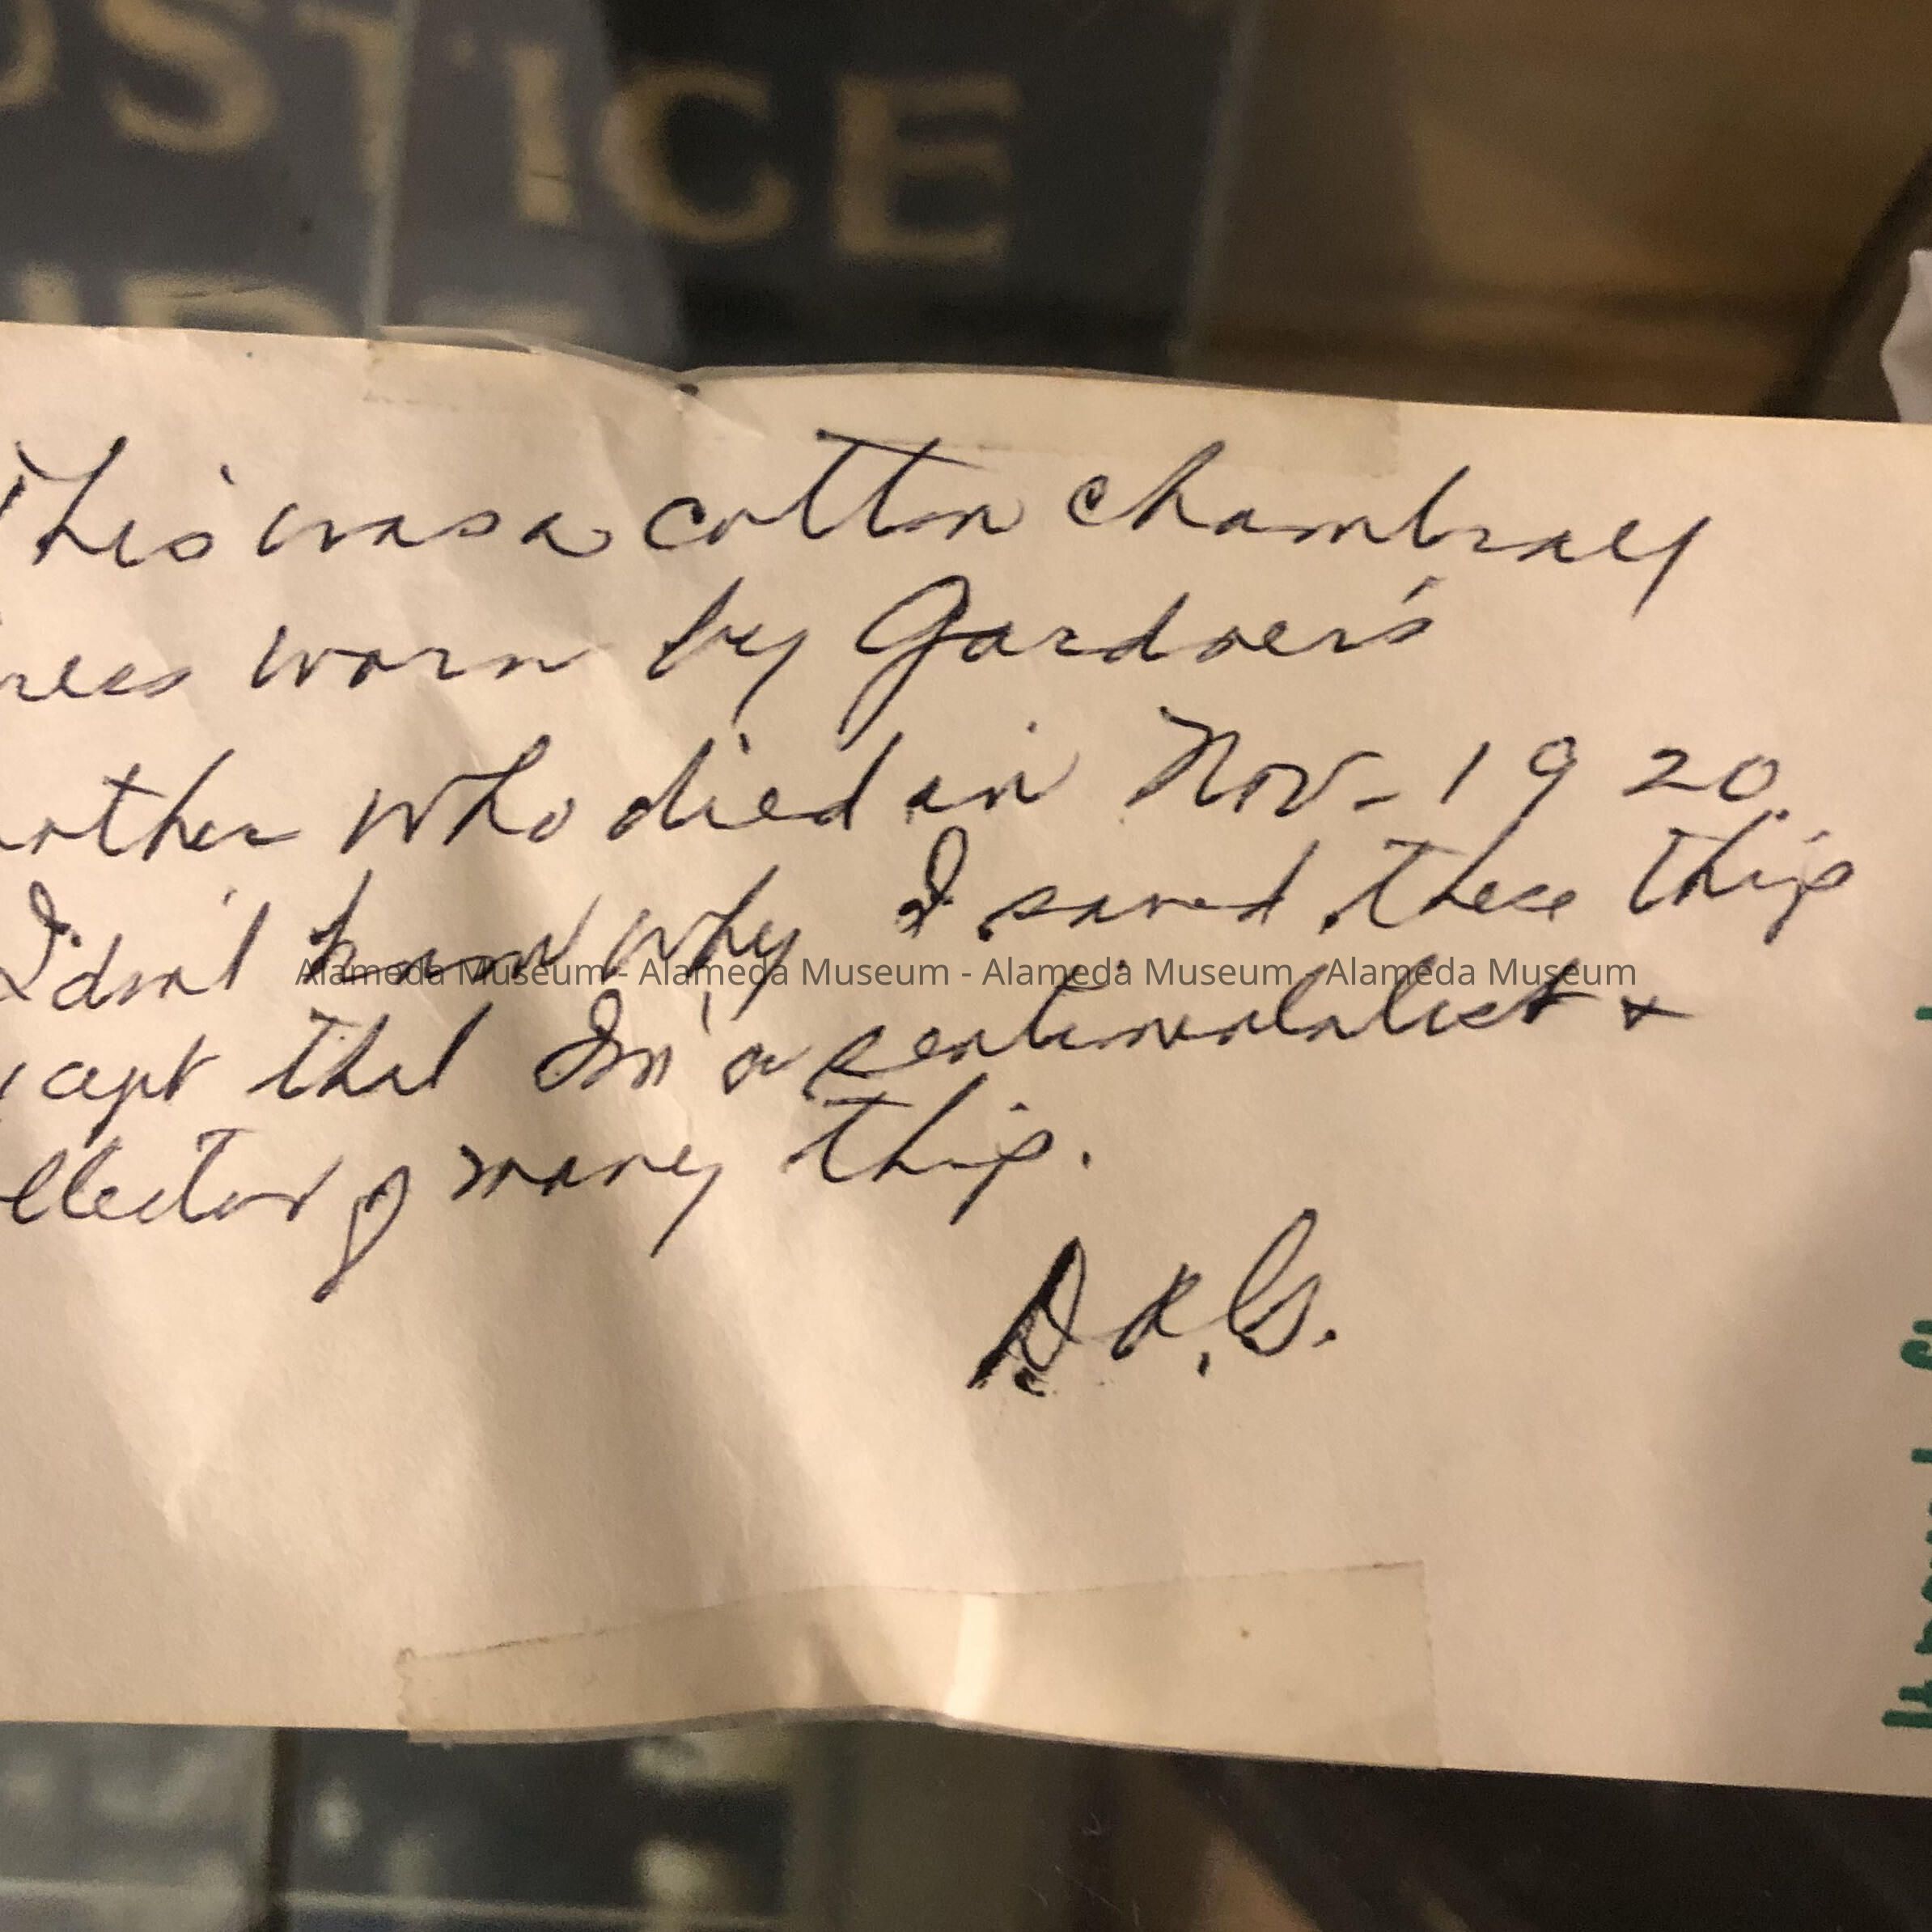 USTICE
This was a cotton chambray
ress worn by Gardner's
other who died in Nov - 1920.
I don't know why I saved these things
cept that I'm a sentimentalist +
llector of many things.
D.R.G.
Alameda Museum - Alameda Museum - Alameda Museum - Alameda Museum